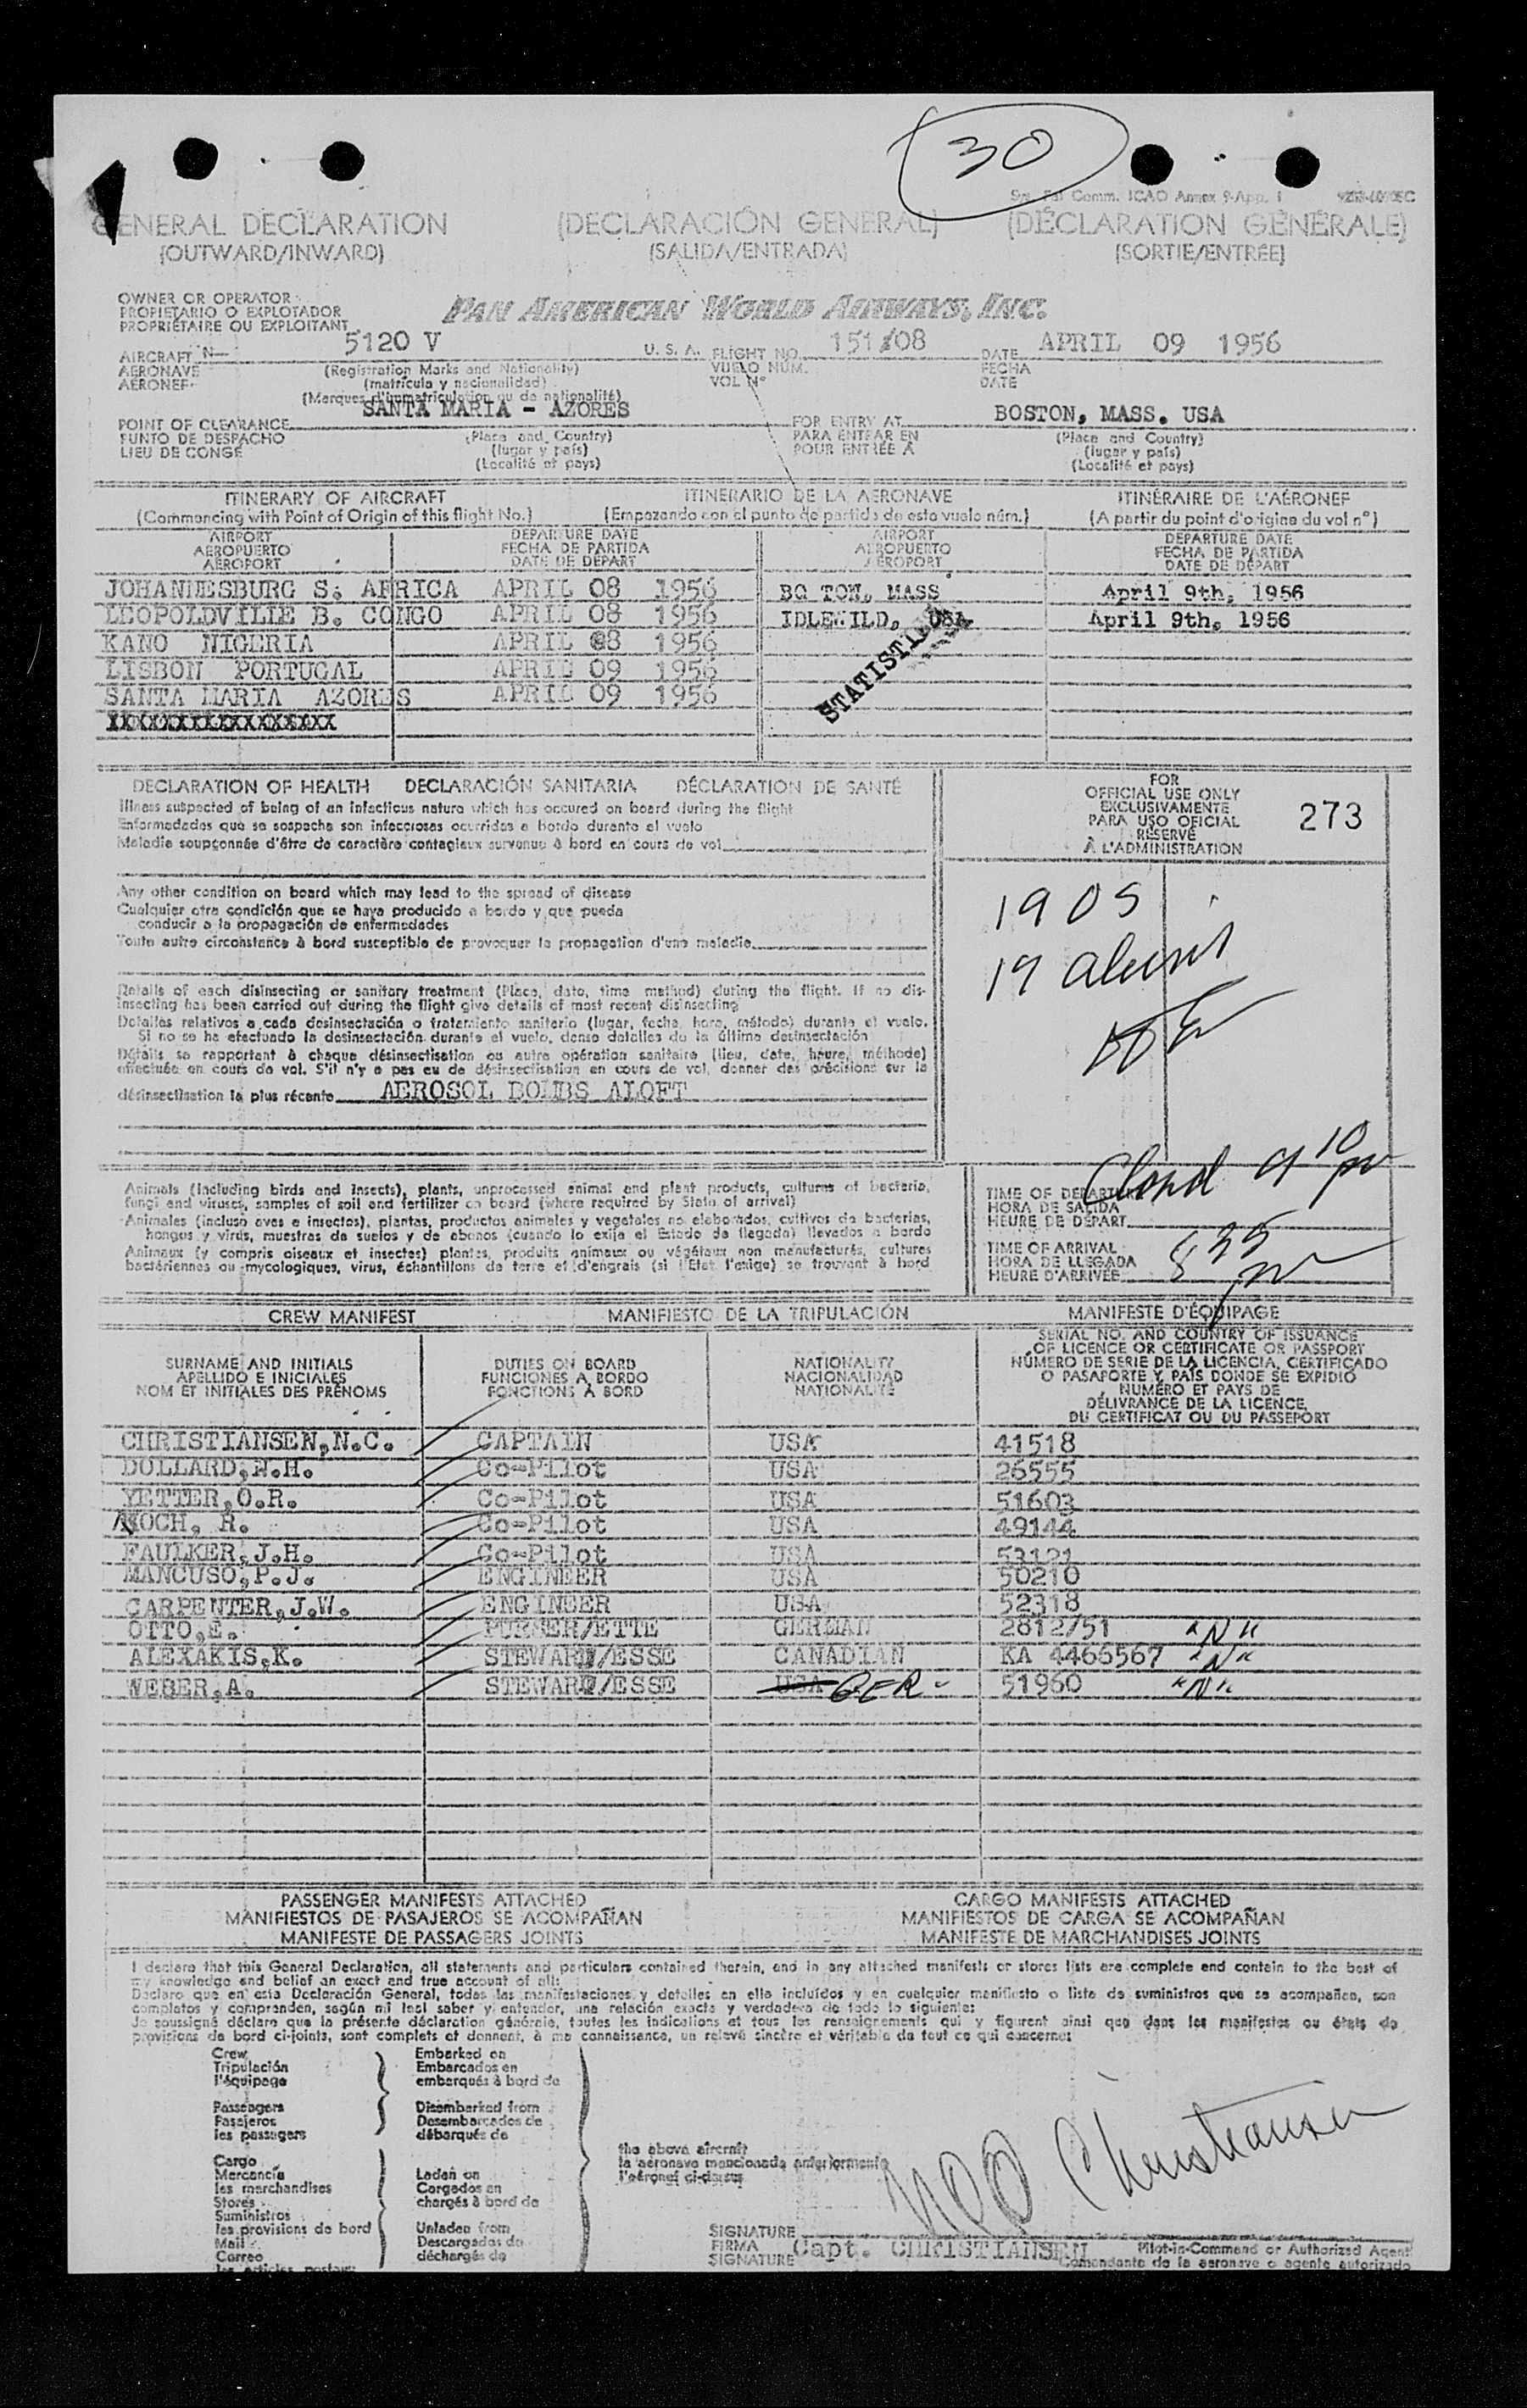 30
Comm. ICAO Annex 9-App. 1
GENERAL DECLARATION (DECLARACIÓN GENERAL) (DÉCLARATION GÉNÉRALE)
(OUTWARD/INWARD) (SALIDA/ENTRADA) (SORTIE/ENTRÉE)
OWNER OR OPERATOR
PROPIETARIO O EXPLOTADOR PAN AMERICAN WORLD AIRWAYS, INC.
PROPRIÉTAIRE OU EXPLOITANT
AIRCRAFT N- 5120 V U. S. A. FLIGHT NO. 151/08 DATE APRIL 09 1956
AERONAVE (Registration Marks and Nationality) VUELO NÚM. FECHA
AÉRONEF (matrícula y nacionalidad) VOL Nº DATE
(Marques d'immatriculation ou de nationalité)
POINT OF CLEARANCE SANTA MARIA - AZORES FOR ENTRY AT BOSTON, MASS. USA
PUNTO DE DESPACHO (Place and Country) PARA ENTRAR EN (Place and Country)
LIEU DE CONGÉ (lugar y país) POUR ENTRÉE À (lugar y país)
(Localité et pays) (Localité et pays)
ITINERARY OF AIRCRAFT ITINERARIO DE LA AERONAVE ITINÉRAIRE DE L'AÉRONEF
(Commencing with Point of Origin of this flight No.) (Empezando con el punto de partida de este vuelo núm.) (A partir du point d'origine du vol nº)
AIRPORT DEPARTURE DATE AIRPORT DEPARTURE DATE
AEROPUERTO FECHA DE PARTIDA AEROPUERTO FECHA DE PARTIDA
AÉROPORT DATE DE DÉPART AÉROPORT DATE DE DÉPART
JOHANNESBURG S: AFRICA APRIL 08 1956 BO TON, MASS April 9th, 1956
LEOPOLDVILLE B. CONGO APRIL 08 1956 IDLEWILD, USA April 9th, 1956
KANO NIGERIA APRIL 08 1956
LISBON PORTUGAL APRIL 09 1956
SANTA MARIA AZORES APRIL 09 1956
DECLARATION OF HEALTH DECLARACIÓN SANITARIA DÉCLARATION DE SANTÉ
Illness suspected of being of an infectious nature which has occured on board during the flight
Enfermedades que se sospecha son infecciosas ocurridas a bordo durante el vuelo
Maladie soupçonnée d'être de caractère contagieux survenue à bord en cours de vol
FOR
OFFICIAL USE ONLY
EXCLUSIVAMENTE
PARA USO OFICIAL
RÉSERVÉ
À L'ADMINISTRATION
273
Any other condition on board which may lead to the spread of disease
Cualquier otra condición que se haya producido a bordo y que pueda
conducir a la propagación de enfermedades
Toute autre circonstance à bord susceptible de provoquer la propagation d'une maladie
1905
19
Details of each disinsecting or sanitary treatment (Place, date, time method) during the flight. If no dis-
insecting has been carried out during the flight give details of most recent disinsecting
Detalles relativos a cada desinsectación o tratamiento sanitario (lugar, fecha, hora, método) durante el vuelo.
Si no se ha efectuado la desinsectación durante el vuelo, dense detalles de la última desinsectación
Détails se rapportant à chaque désinsectisation ou autre opération sanitaire (lieu, date, heure, méthode)
effectuée en cours de vol. S'il n'y a pas eu de désinsectisation en cours de vol, donner des précisions sur la
désinsectisation la plus récente AEROSOL BOMBS ALOFT
Animals (including birds and insects), plants, unprocessed animal and plant products, cultures of bacteria,
fungi and viruses, samples of soil and fertilizer on board (where required by State of arrival)
Animales (incluso aves e insectos), plantas, productos animales y vegetales no elaborados, cultivos de bacterias,
hongos y virus, muestras de suelos y de abonos (cuando lo exija el Estado de llegada) llevados a bordo
Animaux (y compris oiseaux et insectes) plantes, produits animaux ou végétaux non manufacturés, cultures
bactériennes ou mycologiques, virus, échantillons de terre et d'engrais (si l'Etat l'exige) se trouvant à bord
TIME OF DEPARTURE 9 10 pm
HORA DE SALIDA
HEURE DE DÉPART
TIME OF ARRIVAL 8 35 pm
HORA DE LLEGADA
HEURE D'ARRIVÉE
CREW MANIFEST MANIFIESTO DE LA TRIPULACIÓN MANIFESTE D'ÉQUIPAGE
SURNAME AND INITIALS DUTIES ON BOARD NATIONALITY SERIAL NO. AND COUNTRY OF ISSUANCE
APELLIDO E INICIALES FUNCIONES A BORDO NACIONALIDAD OF LICENCE OR CERTIFICATE OR PASSPORT
NOM ET INITIALES DES PRÉNOMS FONCTIONS À BORD NATIONALITÉ NÚMERO DE SERIE DE LA LICENCIA, CERTIFICADO
O PASAPORTE Y PAÍS DONDE SE EXPIDIÓ
NUMÉRO ET PAYS DE
DÉLIVRANCE DE LA LICENCE,
DU CERTIFICAT OU DU PASSEPORT
CHRISTIANSEN,N.C. CAPTAIN USA 41518
DOLLARD,N.H. Co-Pilot USA 26555
YETTER,O.R. Co-Pilot USA 51603
KOCH, R. Co-Pilot USA 49144
FAULKER,J.H. Co-Pilot USA 53121
MANCUSO,P.J. ENGINEER USA 50210
CARPENTER,J.W. ENGINEER USA 52318
OTTO,E. PURSER/ETTE GERMAN 2812/51 "N"
ALEXAKIS,K. STEWARD/ESSE CANADIAN KA 4466567 "N"
WEBER,A. STEWARD/ESSE USA GER- 51960 "N"
PASSENGER MANIFESTS ATTACHED CARGO MANIFESTS ATTACHED
MANIFIESTOS DE PASAJEROS SE ACOMPAÑAN MANIFIESTOS DE CARGA SE ACOMPAÑAN
MANIFESTE DE PASSAGERS JOINTS MANIFESTE DE MARCHANDISES JOINTS
I declare that this General Declaration, all statements and particulars contained therein, and in any attached manifests or stores lists are complete and contain to the best of
my knowledge and belief an exact and true account of all:
Declaro que en esta Declaración General, todas las manifestaciones y detalles en ella incluídos y en cualquier manifiesto o lista de suministros que se acompañen, son
completos y comprenden, según mi leal saber y entender, una relación exacta y verdadera de todo lo siguiente:
Je soussigné déclare que la présente déclaration générale, toutes les indications et tous les renseignements qui y figurent ainsi que dans les manifestes ou états de
provisions de bord ci-joints, sont complets et donnent, à ma connaissance, un relevé sincère et véritable de tout ce qui concerne:
Crew Embarked on
Tripulación Embarcados en
l'équipage embarqués à bord de
Passengers Disembarked from
Pasajeros Desembarcados de
les passagers débarqués de
the above aircraft
la aeronave mencionada anteriormente
l'aéronef ci-dessus
Cargo
Mercancía Laden on
les marchandises Cargados en
Stores chargés à bord de
Suministros
les provisions de bord Unladen from
Mail Descargados de
Correo déchargés de
les articles postaux
Christiansen
SIGNATURE
FIRMA Capt. CHRISTIANSEN Pilot-in-Command or Authorized Agent
SIGNATURE Comandante de la aeronave o agente autorizado